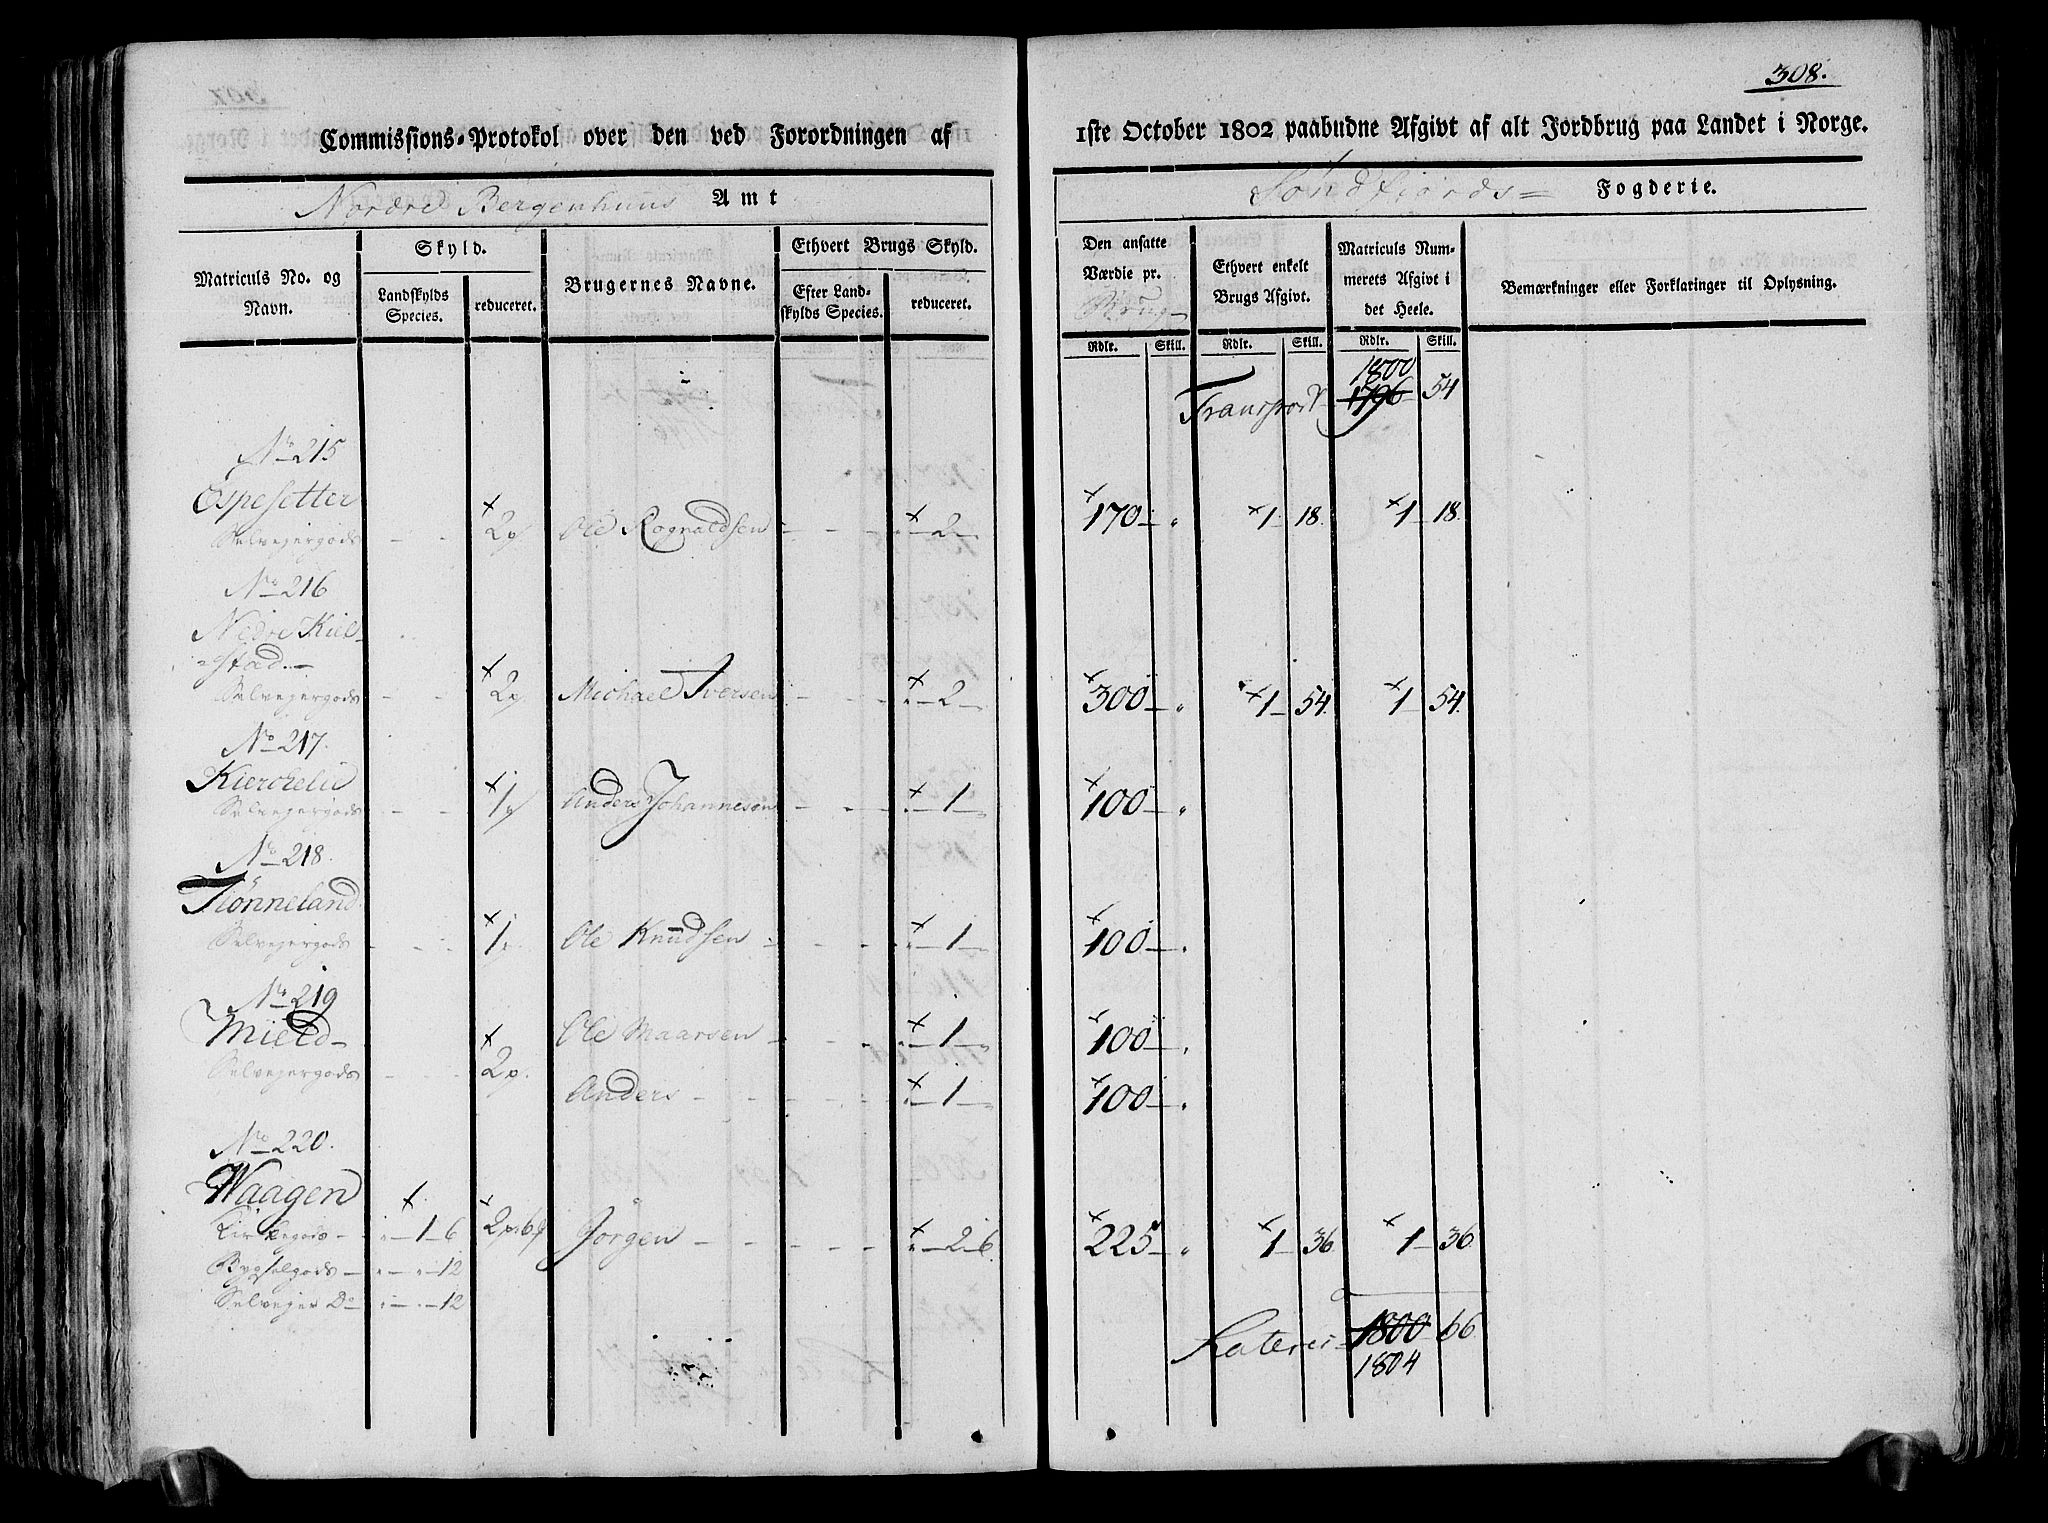 308.
Commissions-Protokol over den ved Forordningen af
1ste October 1802 paabudne Afgivt af alt Jordbrug paa Landet i Norge.
Nordre Bergenhuus Amt
Søndfjords Fogderie.
Matriculs No. og Navn.
Skyld.
Landskylds Species.
reduceret.
Brugernes Navne.
Ethvert Brugs Skyld.
Efter Landskylds Species.
reduceret.
Den ansatte Værdie pr. Brug
Ethvert enkelt Brugs Afgivt.
Matriculs Nummerets Afgivt i det Heele.
Bemærkninger eller Forklaringer til Oplysning.
Rdlr. Skill. Rdlr. Skill. Rdlr. Skill.
1800
Transport 1796 54
No 215
Espesetter
Selvejergods - - 2 Ole Rognaldsen - - - 2 - 170 - " 1 18. 1 - 18.
No 216
Nedre Kiel-
stad.
Selvejergods - - 2 Michael Iversen - - - 2 - 300 - " 1 - 54. 1 - 54.
No 217.
Kierchelie
Selvejergods - - 1 Anders Johannesøn - - - 1 - 100 - "
No 218.
Tiønneland
Selvejergods - - 1 Ole Knudsen - - - 1 - 100 - "
No 219
Mield - Ole Maarsen - - - 1 - 100 - "
Selvejergods - - 2
Anders - - - - 1 - 100 - "
No 220.
Waagen
Kirkegods - - " - 1 - 6 2 6 Jørgen - - - - " - 2 - 6 225 - " 1 36 1 - 36
Bygselgods - " - " - 12
Selvejer Do " - " - 12
Lateris 1800 66
1804